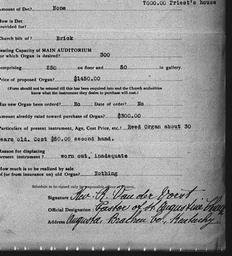 7000.00 Priest's house
Amount of Debt? None
How is Debt
Provided for?
Church built of? Brick
Seating Capacity of MAIN AUDITORIUM
for which Organ is desired? 300
Comprising 250 on floor and 50 in gallery.
Price of proposed Organ? $1450.00
(Form should not be returned till this has been inquired into and the Church authorities
know what the instrument they desire to purchase will cost.)
Has new Organ been ordered? No Date of Order? No
Amount already raised toward purchase of Organ? $300.00
Particulars of present instrument, Age, Cost Price, etc.? Reed Organ about 30
years old. Cost $50.00 second hand.
Reason for displacing
present instrument? worn out, inadequate
How much is to be realized by sale
of (or from insurance on) old Organ? Nothing
Signature Rev. A. Van der Voort
Official Designation Pastor of St Augustine Church
Address Augusta, Bracken Co., Kentucky